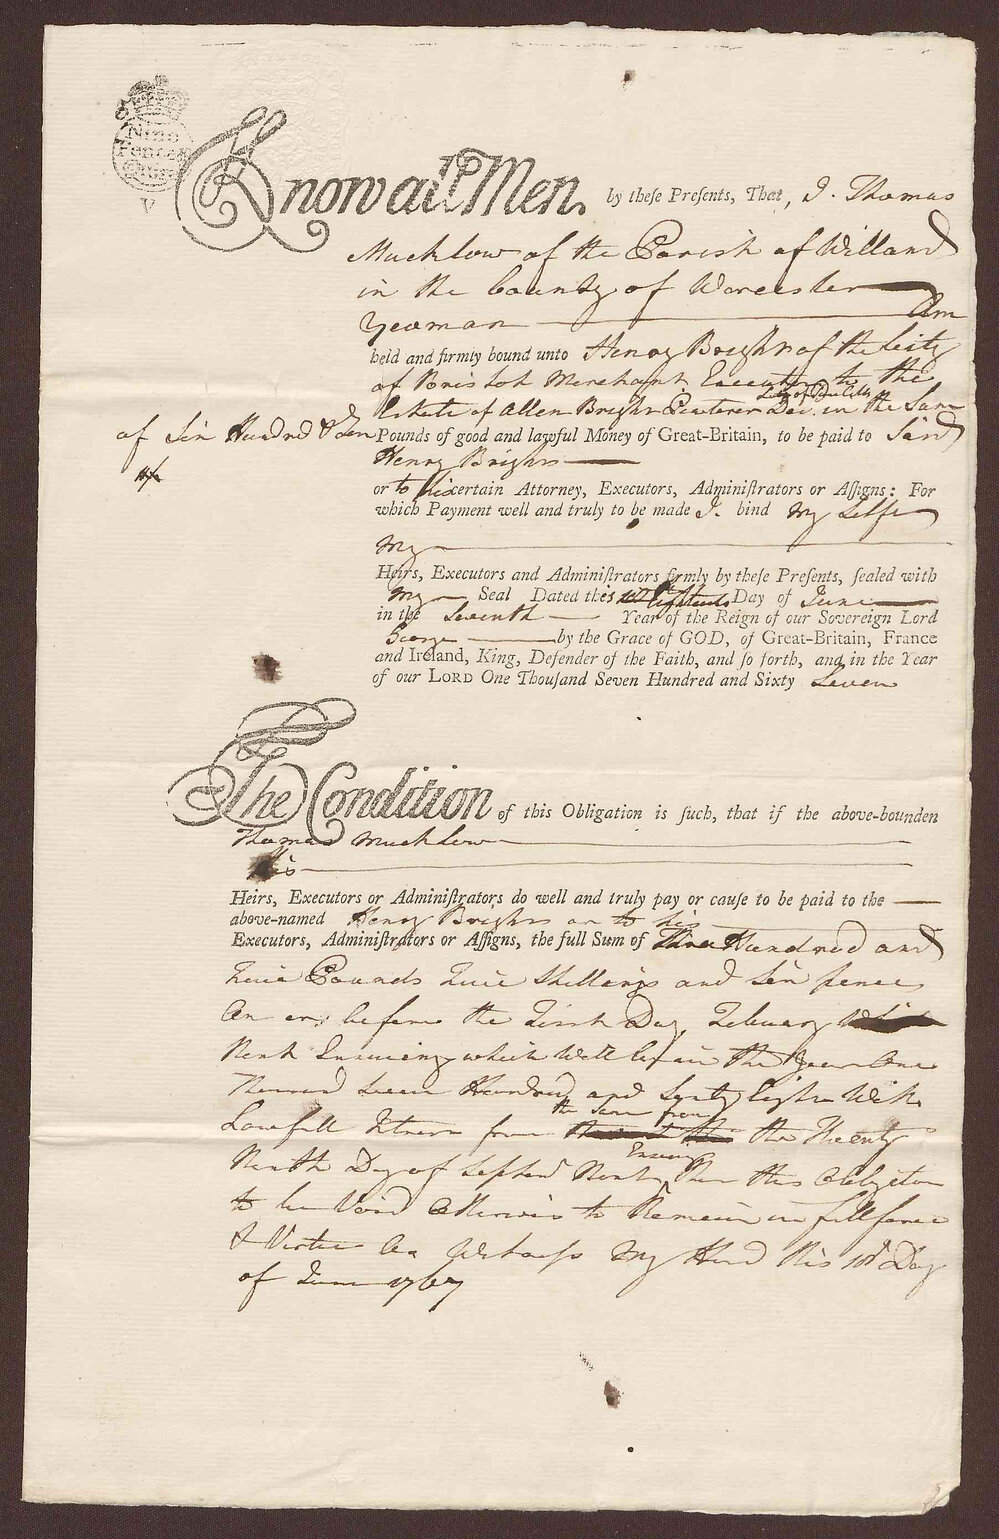 Nine
Pence
V
Know all Men by theſe Preſents, That, I. Thomas
Mucklow of the Parish of Willand
in the County of Worcester
Yeoman Am
held and firmly bound unto Henry Bright of the City
of Bristol Merchant Executor to the
Estate of Allen Bright Peuterer Dec. in the Sum
of Six Hundred & Ten Pounds of good and lawful Money of Great-Britain, to be paid to Said
Henry Bright
or to his certain Attorney, Executors, Adminiſtrators or Aſſigns: For
which Payment well and truly to be made I. bind My Selfe
My
Heirs, Executors and Adminiſtrators firmly by theſe Preſents, ſealed with
My Seal Dated this Day of June
in the Seventh Year of the Reign of our Sovereign Lord
George by the Grace of GOD, of Great-Britain, France
and Ireland, King, Defender of the Faith, and ſo forth, and in the Year
of our LORD One Thouſand Seven Hundred and Sixty Seven
The Condition of this Obligation is ſuch, that if the above-bounden
Thomas Mucklow
his
Heirs, Executors or Adminiſtrators do well and truly pay or cauſe to be paid to the
above-named Henry Bright or to his
Executors, Adminiſtrators or Aſſigns, the full Sum of Three Hundred and
Five Pounds Five Shillings and Six pence
On or before the First Day Febuary
Next Insuing which Will be in the Year One
Thousand Seven Hundred and Sixty Eight With
Lawfull Intrest for the same from the Twenty
Ninth Day of Septemr Next Ensuing Then this Obligation
to be Void Otherwise to Remain in full force
& Virtue As Witness My Hand this 18 Day
of June 1767